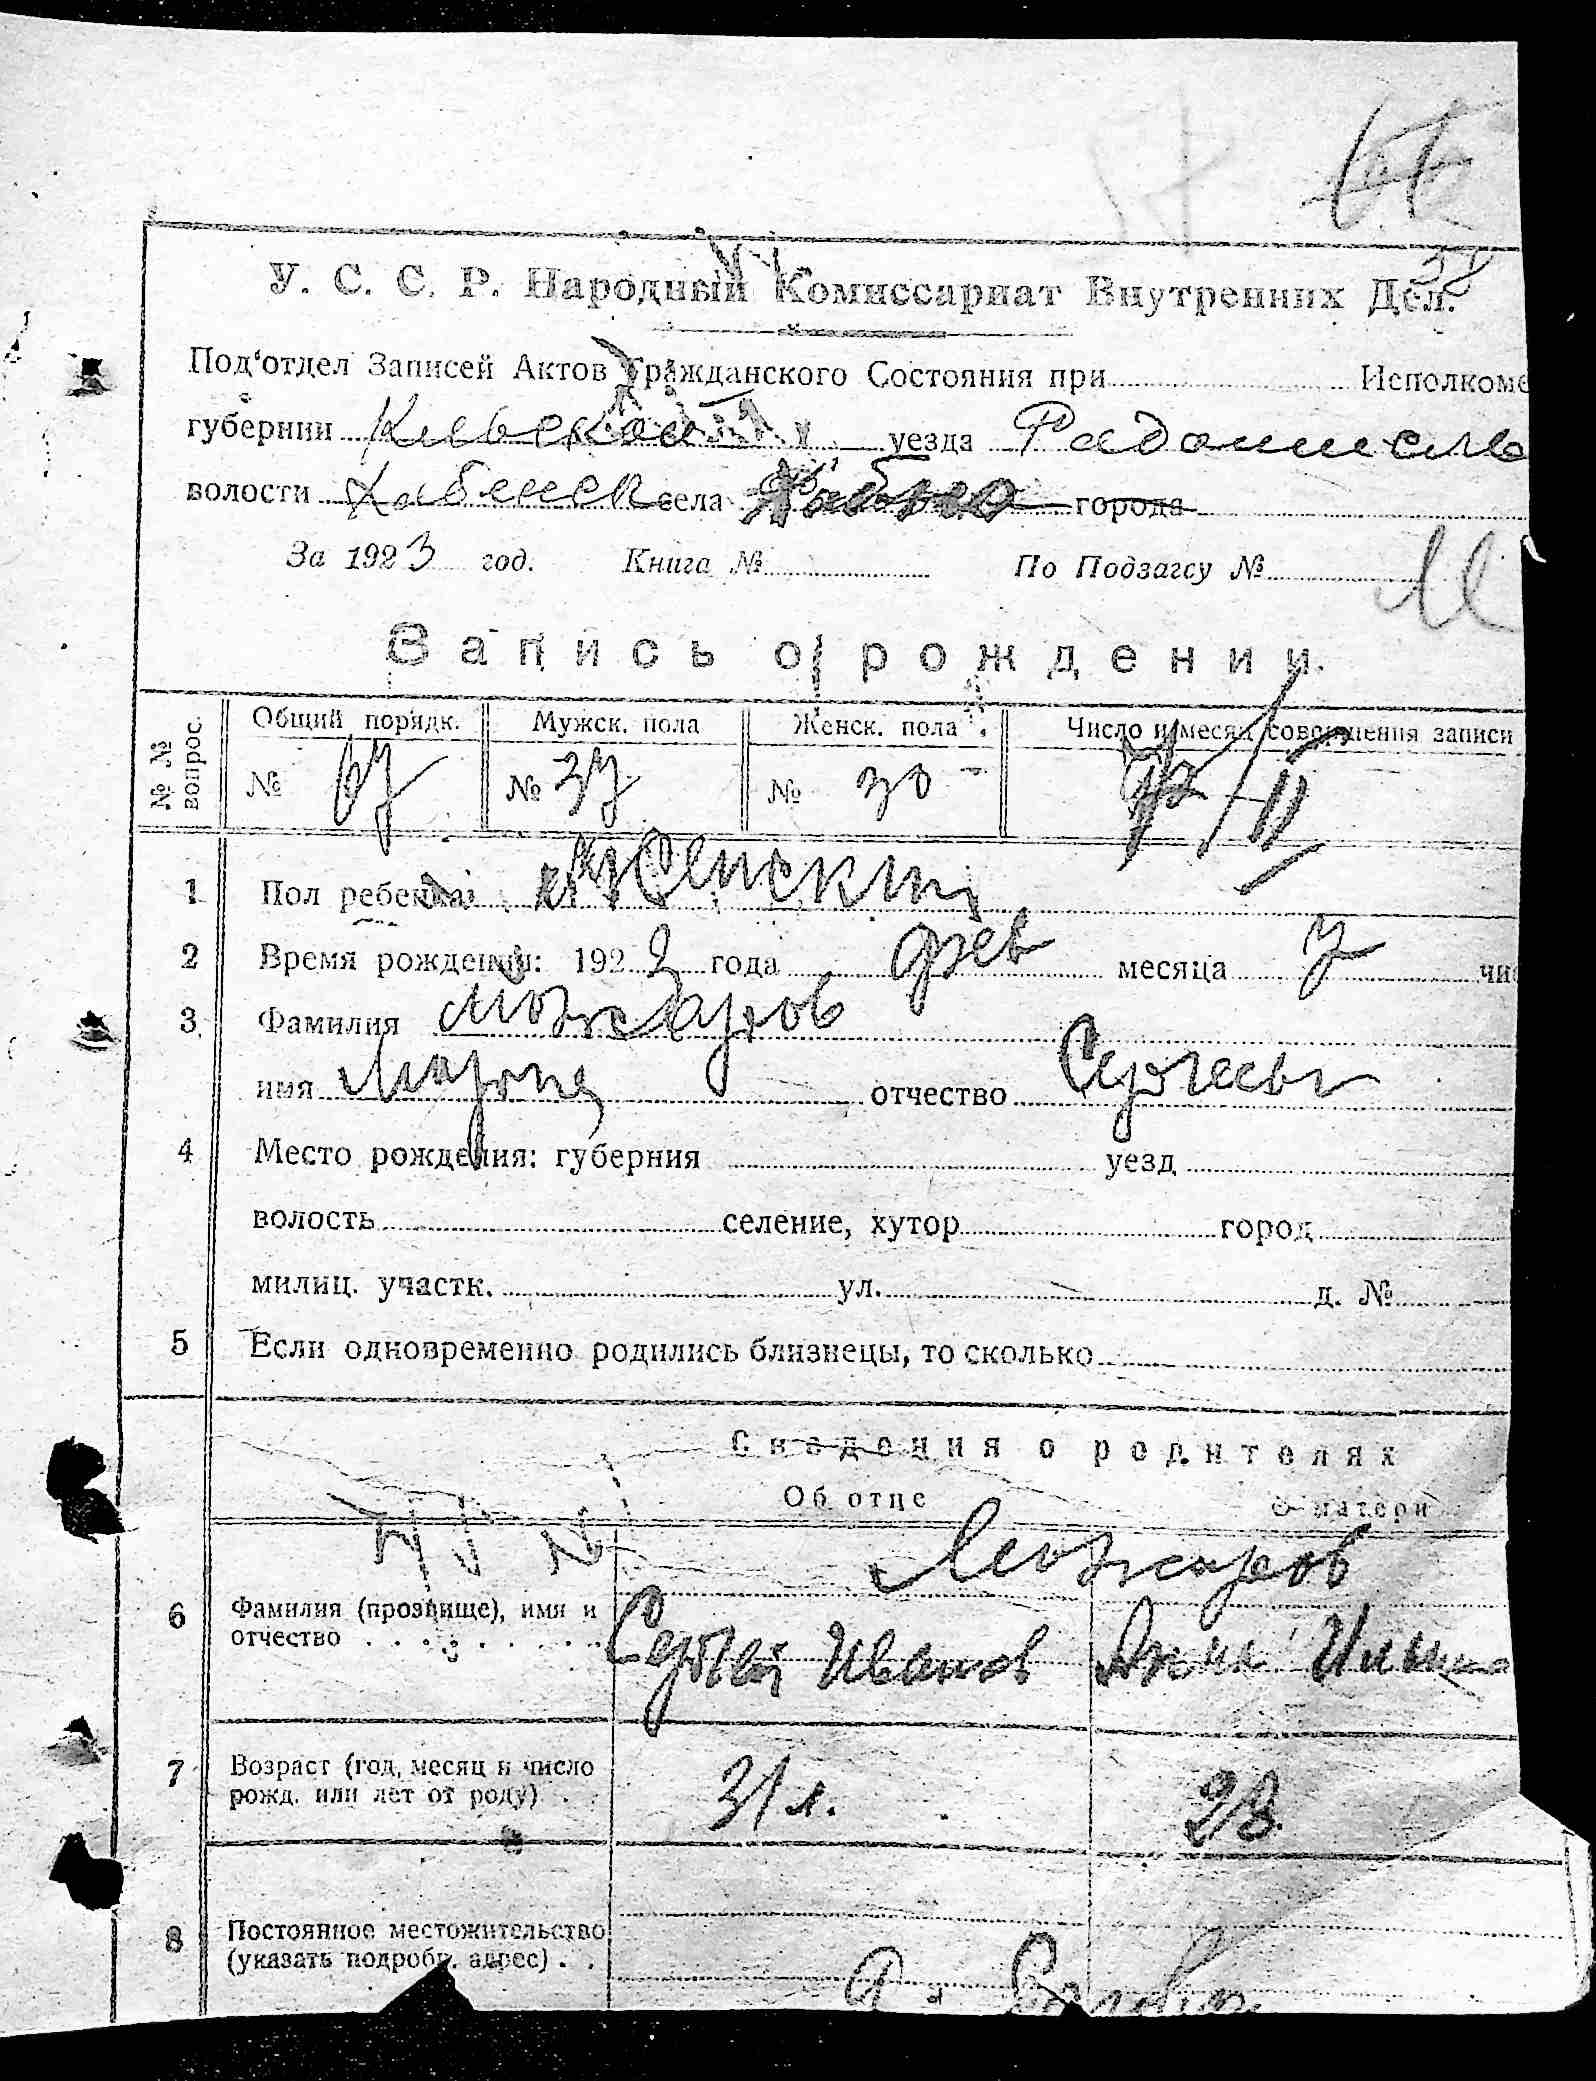 У. С. С. Р. Народный Комиссариат Внутренних Дел.
Под'отдел Записей Актов Гражданского Состояния при Исполкоме
губернии Киевской уезда Радомысль
волости Хабенск села Хабно города
За 1923 год. Книга № По Подзагсу №
Запись о рождении.
№ № вопрос.
Общий порядк. Мужск. пола Женск. пола Число и месяц совершения записи
№ 67 № 37 № 30 /II
1 Пол ребенка: Женский
2 Время рождения: 192 года фев месяца 7 чис
3 Фамилия Можаров
имя отчество Сергеевн
4 Место рождения: губерния уезд
волость селение, хутор город
милиц. участк. ул. д. №
5 Если одновременно родились близнецы, то сколько
Сведения о родителях
Об отце О матери
Можаров
6 Фамилия (прозвище), имя и
отчество Сергей Иванов
7 Возраст (год, месяц и число
рожд. или лет от роду) 31 л. 28
8 Постоянное местожительство
(указать подробн. адрес)